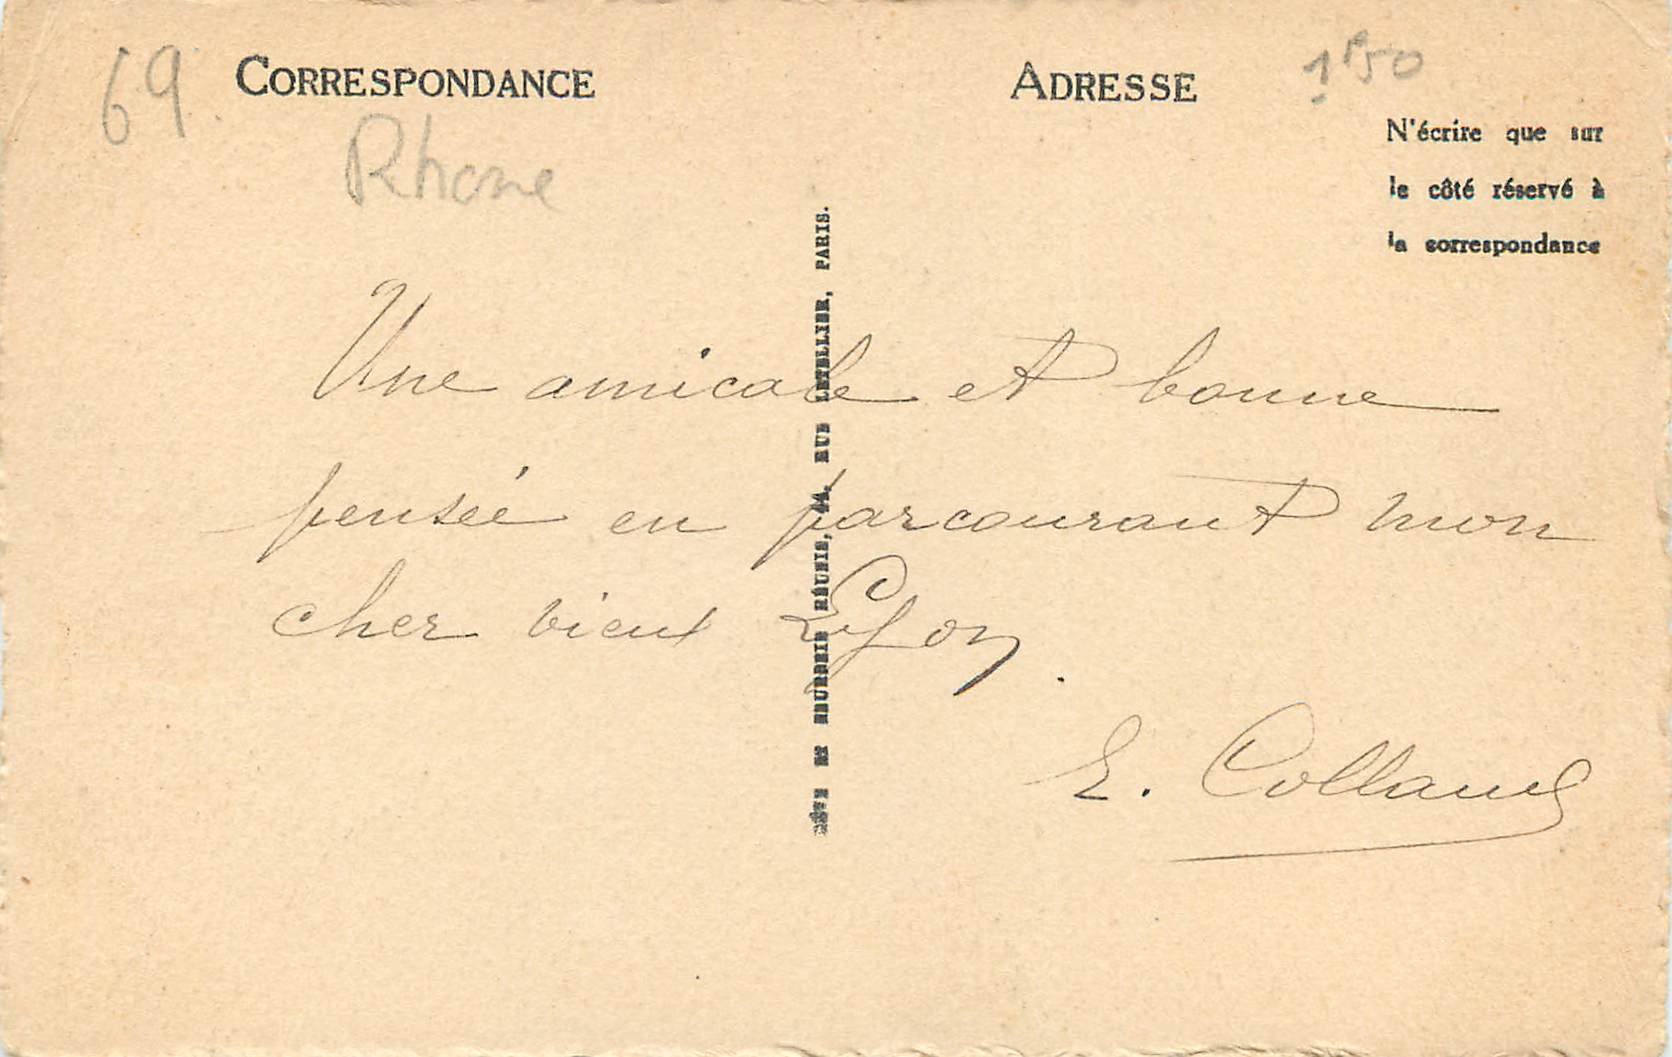 69
CORRESPONDANCE
Rhone
ADRESSE
1F50
N'écrire que sur
le côté réservé à
la correspondance
Une amicale et bonne
pensée en parcourant mon
cher vieux Lyon.
E. Colland
RÉUNIS, 44, RUE LETELLIER, PARIS.